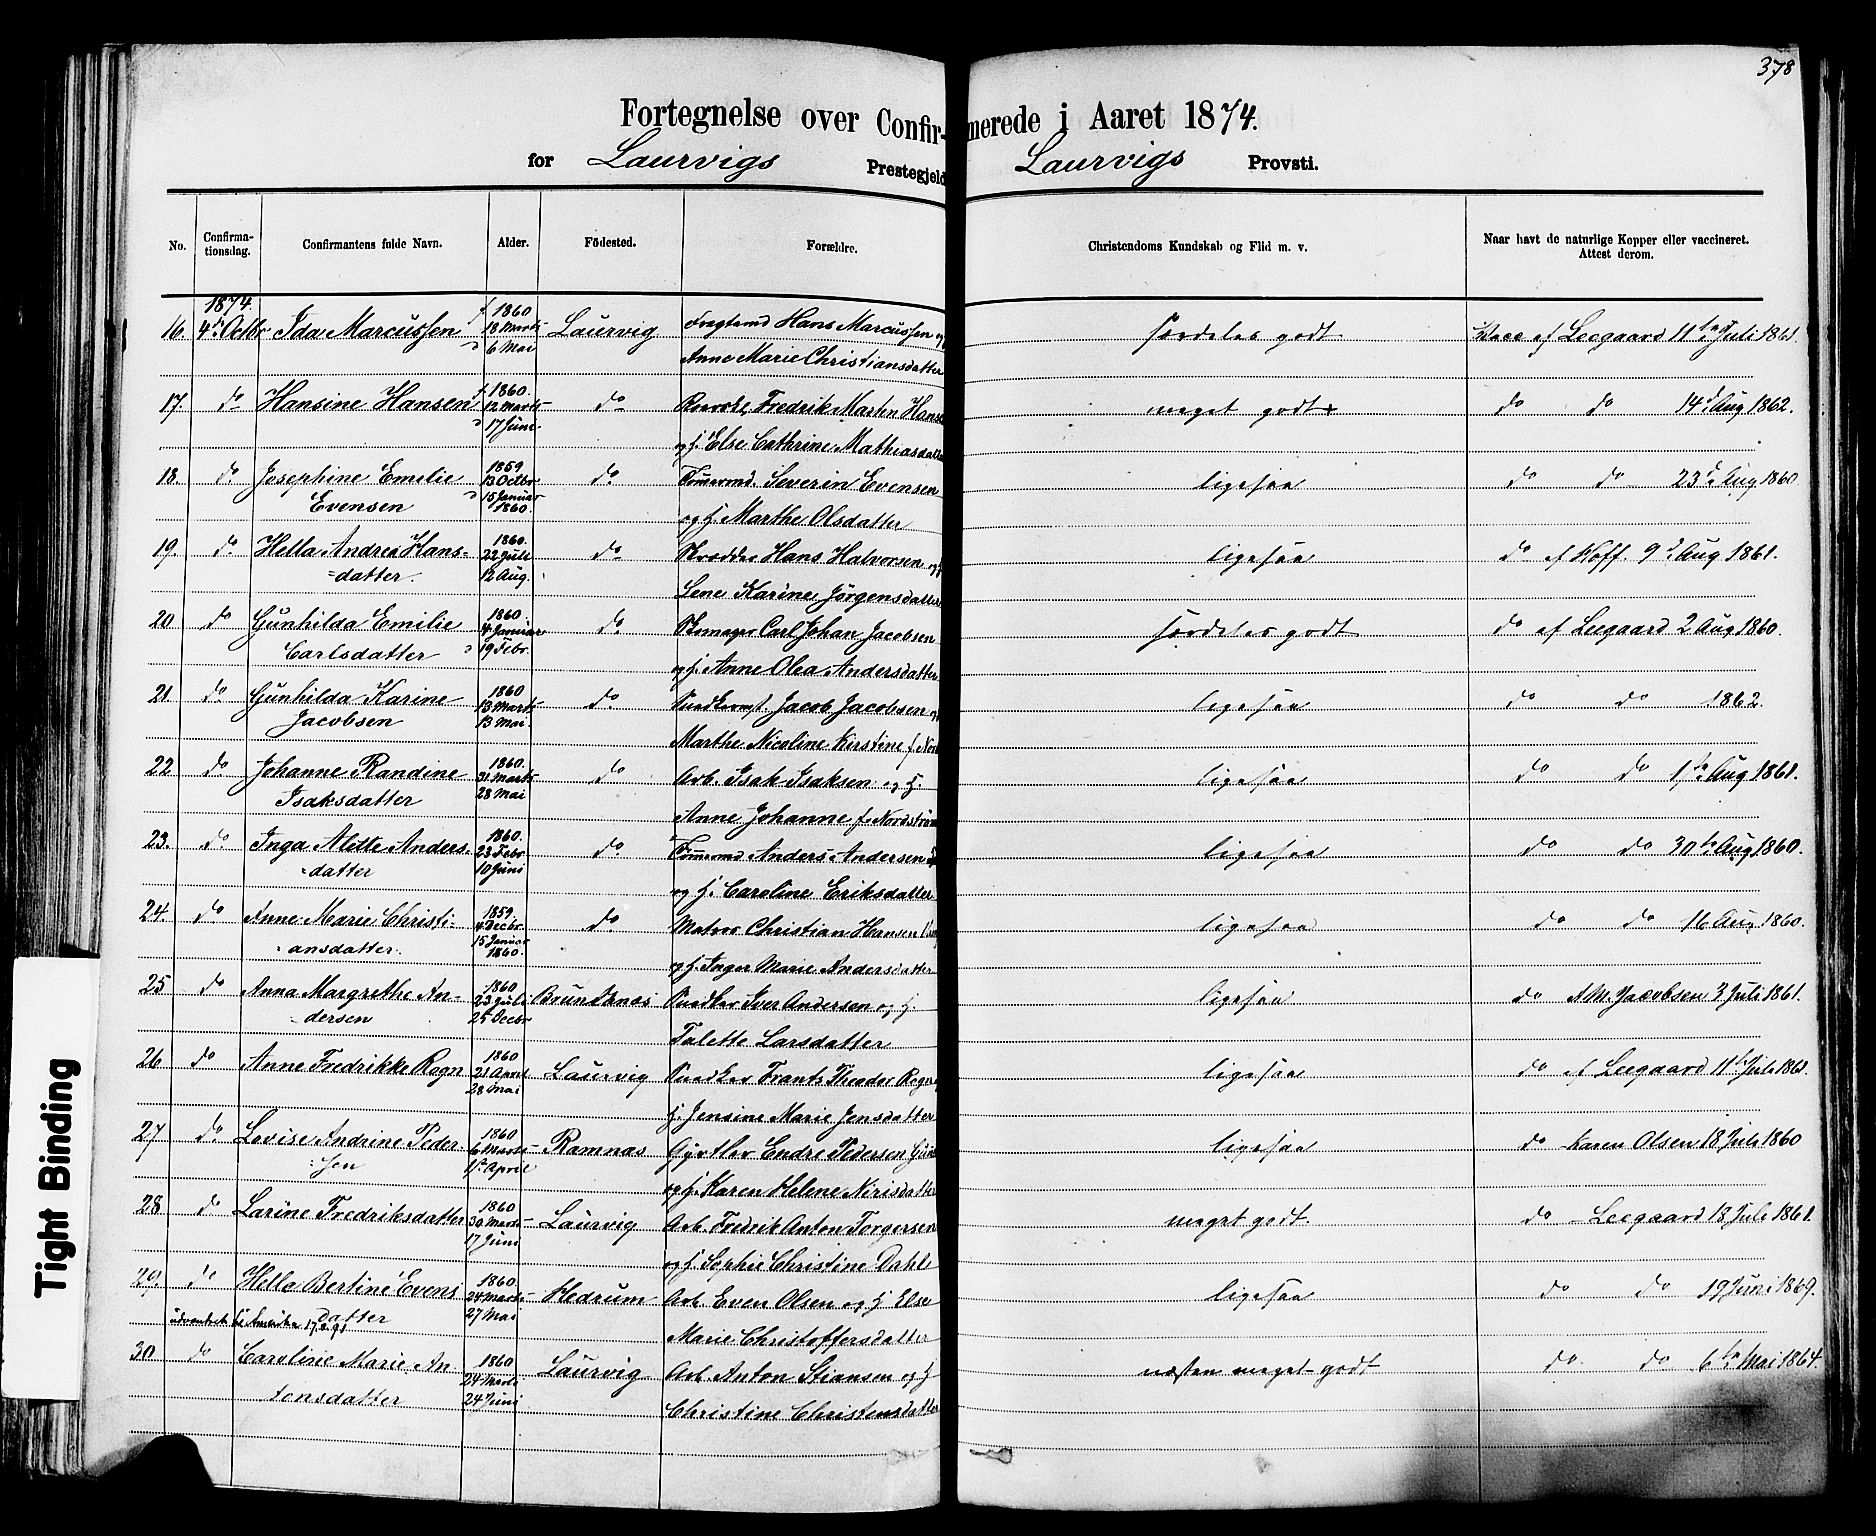 378
Fortegnelse over Confir- merede i Aaret 1874.
for Laurvigs Prestegjeld Laurvigs Provsti.
No. Confirma-tionsdag. Confirmantens fulde Navn. Alder. Födested. Forældre. Christendoms Kundskab og Flid m. v. Naar havt de naturlige Kopper eller vaccineret. Attest derom.
1874. f. 1860
16. 4de Octbr Ida Marcussen 18 Marts Laurvig Hans Marcussen og særdeles godt Vacc af Leegaard 11te Juli 1861.
d 6 Mai Anne Marie Christiansdatter
f. 1860.
17. do Hansine Hansen 12 Marts do Fredrik Martin Hanse meget godt do do 14d Aug 1862.
d 17 Juni og h. Else Cathrine Mathiasdatte
1859
18. do Josephine Emilie 13 Octbr do Tømrmd. Severin Evensen ligesaa do do 23d Aug 1860
Evensen d 15 Januar 1860. og h. Marthe Olsdatter
1860.
19. do Hella Andrea Hans- 22 Juli do Skrædder Hans Halvorsen og ligesaa do af Hoff. 9d Aug 1861.
=datter. 12 Aug. Lene Karine Jørgensdatter
1860
20 do Gunhilda Emilie 4 Januar do Skomager Carl Johan Jacobsen særdeles godt do af Leegaard 2 Aug 1860.
Carlsdatter d 19 Febr. og h. Anne Olea Andersdatter
1860
21 do Gunhilda Karine 13 Marts do Jacob Jacobsen og ligesaa do do 1862.
Jacobsen 13 Mai Marthe Nicoline Kirstine f. Nord
1860.
22 do Johanne Randine 31 Marts do Arb. Isak Isaksen og h. ligesaa do do 1ste Aug 1861.
Isaksdatter 28 Mai Anne Johanne f. Nordstrøm
1860.
23. do Inga Alette Anders- 23 Febr do Tømrmd Anders Andersen ligesaa do do 30te Aug 1860.
=datter 10 Juni og h. Caroline Eriksdatter
1859.
24. do Anne Marie Christi- 4 Decbr. do Matros Christian Hansen ligesaa do do 16 Aug 1860.
=ansdatter. 15 Januar 1860. og h. Inger Marie Andersdatter
1860
25 do Anna Margrethe An- 23 Juli Brundknes Snedker Iver Andersen og h. ligesaa do A M. Jacobsen 3 Juli 1861.
=dersen 25 Decbr Talette Larsdatter
1860
26 do Anne Fredrikke Rogn 21 April Laurvig Snedker Frants Theodor Rogn ligesaa do af Leegaard 11te Juli 1861.
28 Mai h. Jensine Marie Jensdatter
1860
27 do Lovise Andrine Peder- 6 Marts Ramnæs Gjørtler Endre Pedersen ligesaa do Karen Olsen 18 Juli 1860
=sen 1st April og h. Karen Helene Nirisdatter
1860
28 do Larine Fredriksdatter 30 Marts Laurvig Arb. Fredrik Anton Torgersen meget godt. do Leegaard 18 Juli 1861.
17 Juni og h. Sophie Christine Dahl
1860.
29. do Hella Bertine Evens 24 Marts Hedrum Arb. Even Olsen og h. Else ligesaa do do 19 Juni 1869.
udvandret til Amerika datter 27 Mai Marie Christoffersdatter
1860
30 do Caroline Marie An- 24 Marts Laurvig Arb. Anton Stiansen og h næsten meget godt do do 6te Mai 1864.
tonsdatter 24 Juni Christine Christensdatter
Tight Binding